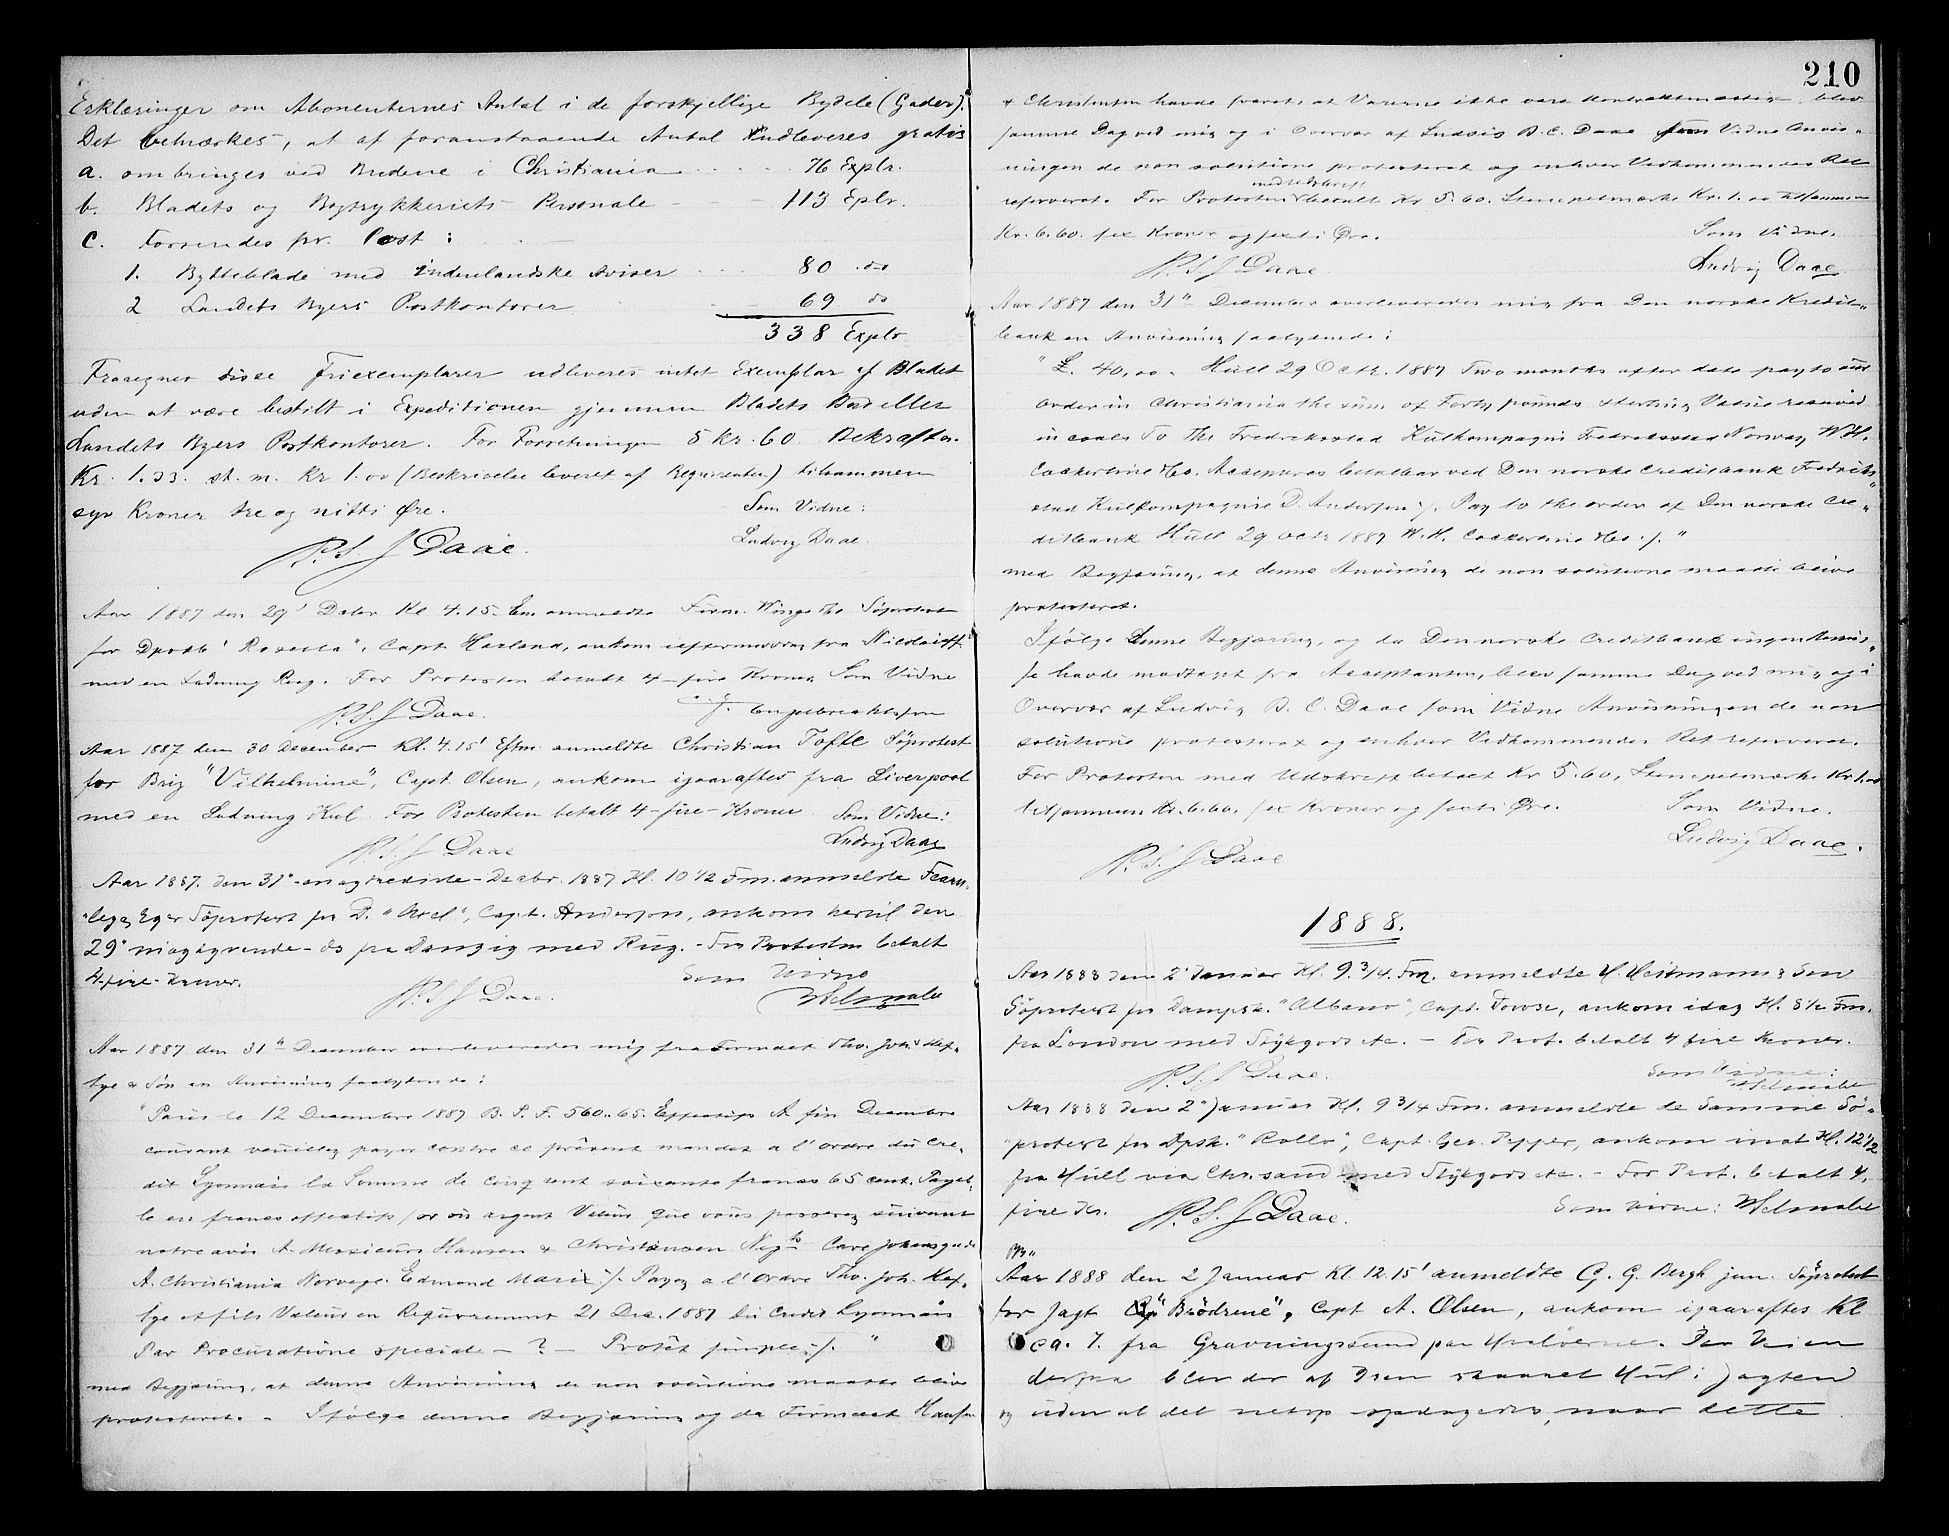 Erklæringer om Abonenternes Antal i de forskjellige Bydele (Gader).
Det bemærkes, at af foranstaaende Antal udleveres gratis
a. ombringes ved Budene i Christiania 76 Explr.
b. Bladets og Bogtrykkeriets Personale 113 Eplr.
c. Forsendes pr. Post:
1. Bytteblade med indenlandske Aviser 80 do
2 Landets Byers Postkontorer 69 do
338 Explr
Fraregnet disse Friexemplarer udleveres intet Exemplar af Bladet
uden at være bestilt i Expeditionen gjennem Bladets Bud eller
Landets Byers Postkontorer. For Forretningen 5 Kr. 60. Bekræften.
Kr. 1.33. st. m. Kr 1.00 (Beskrivelse leveret af Reqvirenten) tilsammen
syv Kroner tre og nitti Øre. Som Vidne:
P.S.J Daae. Ludvig Daae
Aar 1887 den 29' Decbr Kl 4.15. Em anmeldte Firm. Winge &Co Søprotest
for Dpskb "Rosetta", Capt Havland, ankom iettermiddag fra Nicolaieff
med en Ladning Rug. For Protesten betalt 4 - fire Kroner. Som Vidne
P.S.J Daae. J. Engelbrechtsen
Aar 1887 den 30 December Kl. 4.15' Eftm. anmeldte Christian Tofte Søprotest
for Brig "Vilhelmine", Capt. Olsen, ankom igaaraftes fra Liverpool
med en Ladning Kul. For Protesten betalt 4 - fire - Kroner Som Vidne:
P.S.J Daae Ludvig Daae
Aar 1887. den 31' - en og tredivte - Decbr. 1887 Kl. 10 1/2 Fm. anmeldte Fearn-
"ley & Eger Søprotest for D. "Roel", Capt. Anderson, ankom hertil den
29' niogtyvende - ds fra Danzig med Rug. - For Protesten betalt
4 - fire - Kroner. Som Vidne
P.S.J Daae.
Aar 1887 den 31" December overleveredes mig fra Firmaet Tho. Joh. Hef-
tye & Søn en Anvisning saalydende:
"Paris le 12 Decembre 1887 B. P. F. 560.65. Effectifs A fin Decembre
courant veuillez payer contre ce présent mandat a l'ordre du Cre-
dit Lyonnais la Somme de cinq cent soixante francs 65 cent. Payab-
le en francs effectifs, or ou argent Valeur que vous passerez suivant
notre avis A Messieurs Hansen & Christensen Negts Carl Johansgade
A. Christiania Norvege. Edmond Marix ./. Payez a l'ordre Tho. Joh. Hef-
tye et fils Valeur en Reçouvrement 21 Dec. 1887 Du Credit Lyonnais
Par Procuration speciale - ? - Protêt simple ./. "
med Begjæring, at denne Anvisning de non solutione maatte blive
protesteret. - Ifølge denne Begjæring og da Firmaet Hansen
210
& Christensen havde svaret, at Varerne ikke vare kontraktmæssige, blev
samme Dag ved mig og i Overvær af Ludvig B. C. Daae som Vidne Anvis-
ningen de non solutione protesteret og enhver Vedkommendes Ret
med Udskrift
reserveret. For Protesten betalt Kr 5.60. Stempelmærke Kr. 1.00 tilsammen
Kr. 6.60. sex Kroner og sexti Øre. Som Vidne.
P.S.J Daae Ludvig Daae
Aar 1887 den 31" December overleveredes mig fra Den norske Kredit-
bank en Anvisning saalydende:
"£. 40,00. Hull 29 Octr. 1887 Two months after date pay to our
order in Christiania the sum of Forty pounds sterling Value received
in coals To The Fredrikstad Kulkompagni Fredrikstad Norway W.H.
Cockerline &Co. Accepteres betalbar ved Den norske Creditbank Fredrik-
stad Kulkompagnie D. Andersen ./. Pay to the order of Den norske Cre-
ditbank Hull 29 Octr 1887 W.H. Cockerline &Co. ./. "
med Begjæring, at denne Anvisning de non solutione maatte blive
protesteret.
Ifølge denne Begjæring, og da Den norske Creditbank ingen Remis-
se havde modtaget fra Acceptanten, blev samme Dag ved mig og i
Overvær af Ludvig B. C. Daae som Vidne Anvisningen de non
solutione protesteret og enhver Vedkommendes Ret reserveret.
For Protesten med Udskrift betalt Kr 5.60, Stempelmærke Kr. 1.00
tilsammen Kr. 6.60. sex Kroner og sexti Øre. Som Vidne.
P.S.J Daae Ludvig Daae.
1888.
Aar 1888 den 2' Januar Kl. 9.3/4. Fm. anmeldte H. Heitmann & Søn
Søprotest for Dampsk. "Albano", Capt. Towse, ankom idag Kl. 8 1/2 Fm.
fra London med Stykgods etc. - For Prot. betalt 4 fire Kroner.
P.S.J. Daae. Som Vidne:
Aar 1888 den 2" Januar Kl. 9 3/4 Fm. anmeldte de Samme Sø-
"protest for Dpsk. "Rollo", Capt. Geo. Pepper, ankom inat Kl. 12 1/2
fra Hull via Chr.sand med Stykgods etc. - For Prot. betalt 4,
fire Kr. P.S.J Daae. Som Vidne:
Aar 1888 den 2 Januar Kl. 12.15' anmeldte G. G. Bergh jun. Søprotest
for Jagt "Brödrene", Capt A. Olsen, ankom igaaraftes Kl
ca. 7. fra Gravningssund paa Hvaløerne. Paa Veien
derfra blev der af Isen skaaret Hul i Jagten
og uden at det netop opdagedes, naar dette